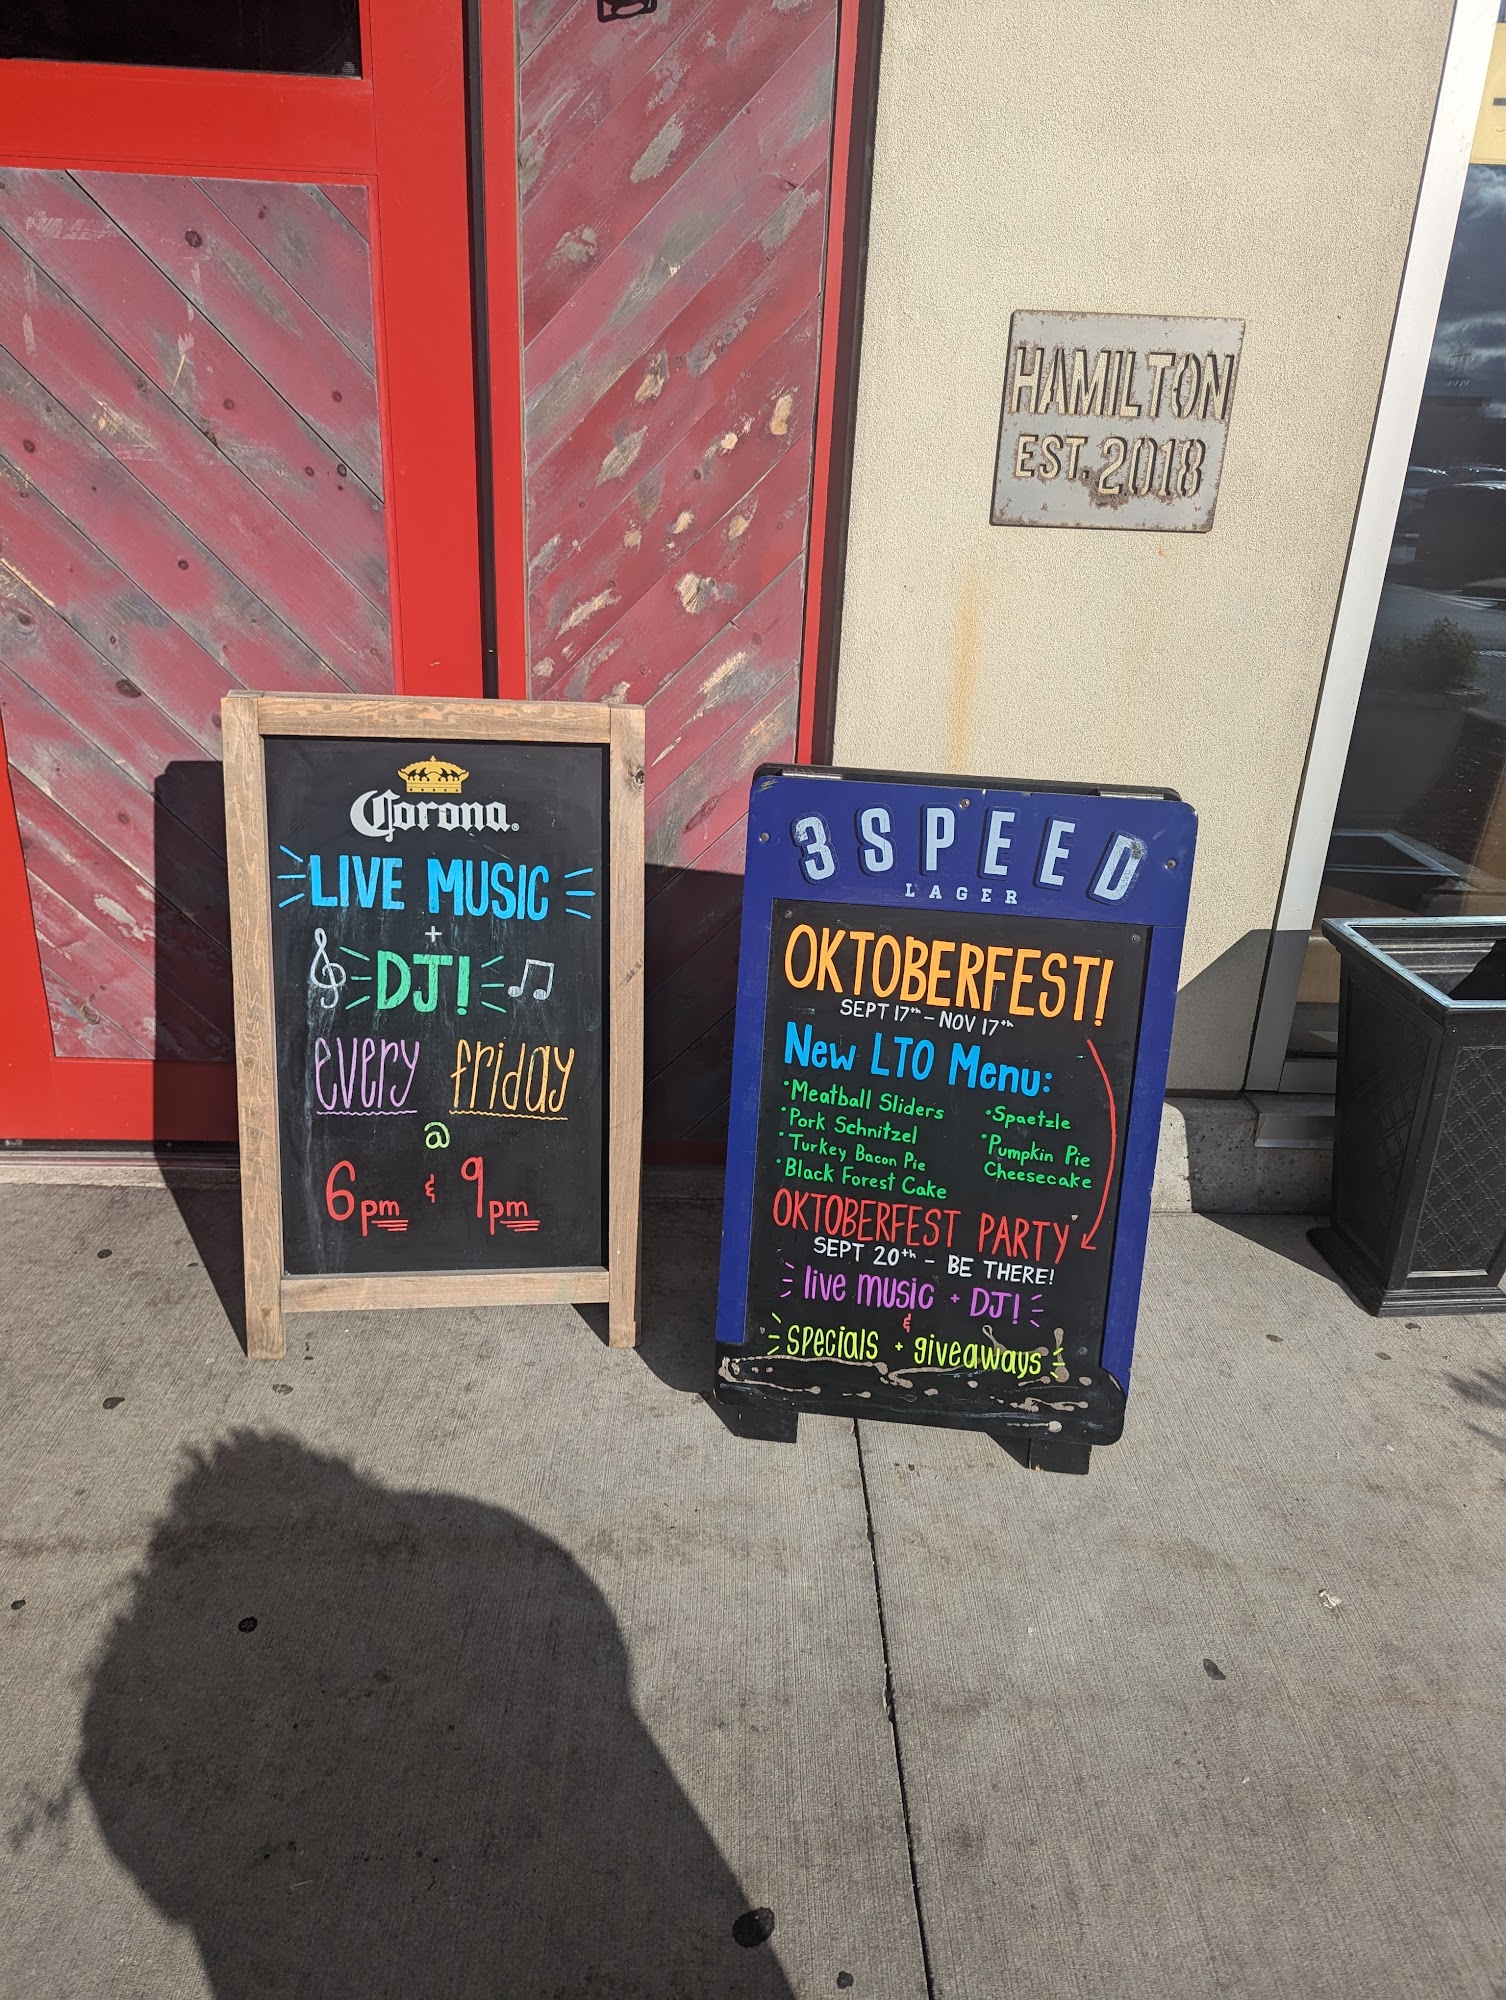 HAMILTON
EST. 2018
Corona®
LIVE MUSIC
+
DJ!
every friday
@
6pm & 9pm
3 SPEED
LAGER
OKTOBERFEST!
SEPT 17th - NOV 17th
New LTO Menu:
• Meatball Sliders
• Pork Schnitzel
• Turkey Bacon Pie
• Black Forest Cake
• Spaetzle
• Pumpkin Pie
Cheesecake
OKTOBERFEST PARTY
SEPT 20th - BE THERE!
live music + DJ!
&
specials + giveaways